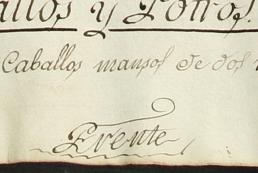 allos y Potros.
Caballos mansos de dos
Frente